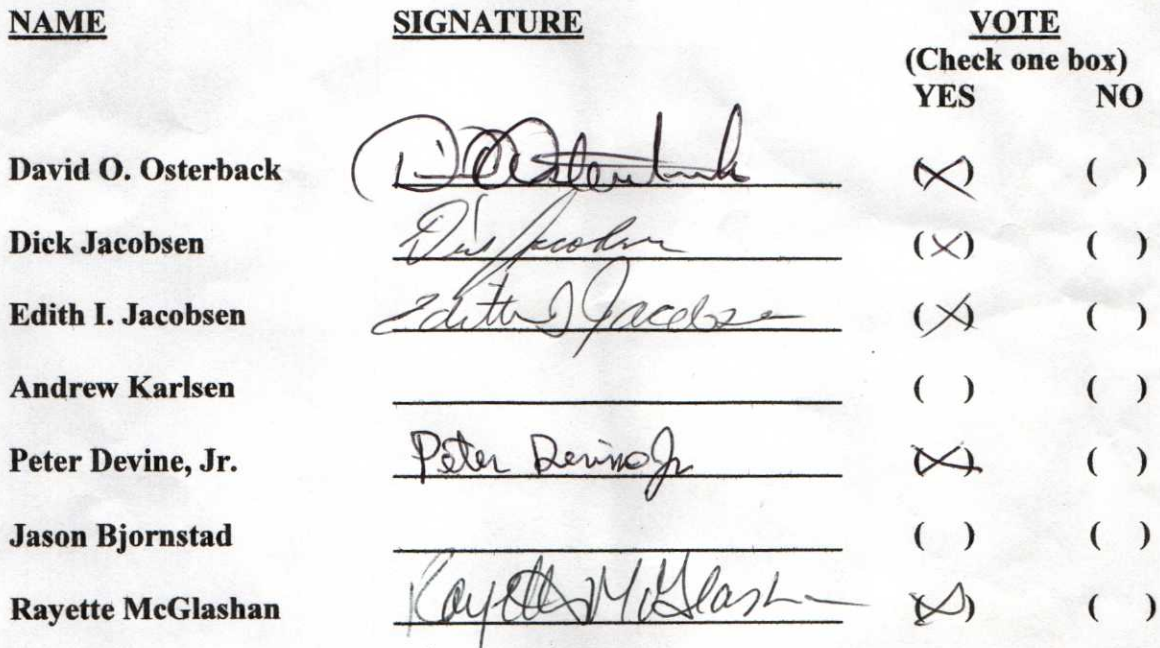 NAME SIGNATURE VOTE
(Check one box)
YES NO
David O. Osterback D O Osterback (X) ( )
Dick Jacobsen Dick Jacobsen (X) ( )
Edith I. Jacobsen Edith I Jacobsen (X) ( )
Andrew Karlsen ( ) ( )
Peter Devine, Jr. Peter Devine Jr (X) ( )
Jason Bjornstad ( ) ( )
Rayette McGlashan Rayette McGlashan (X) ( )